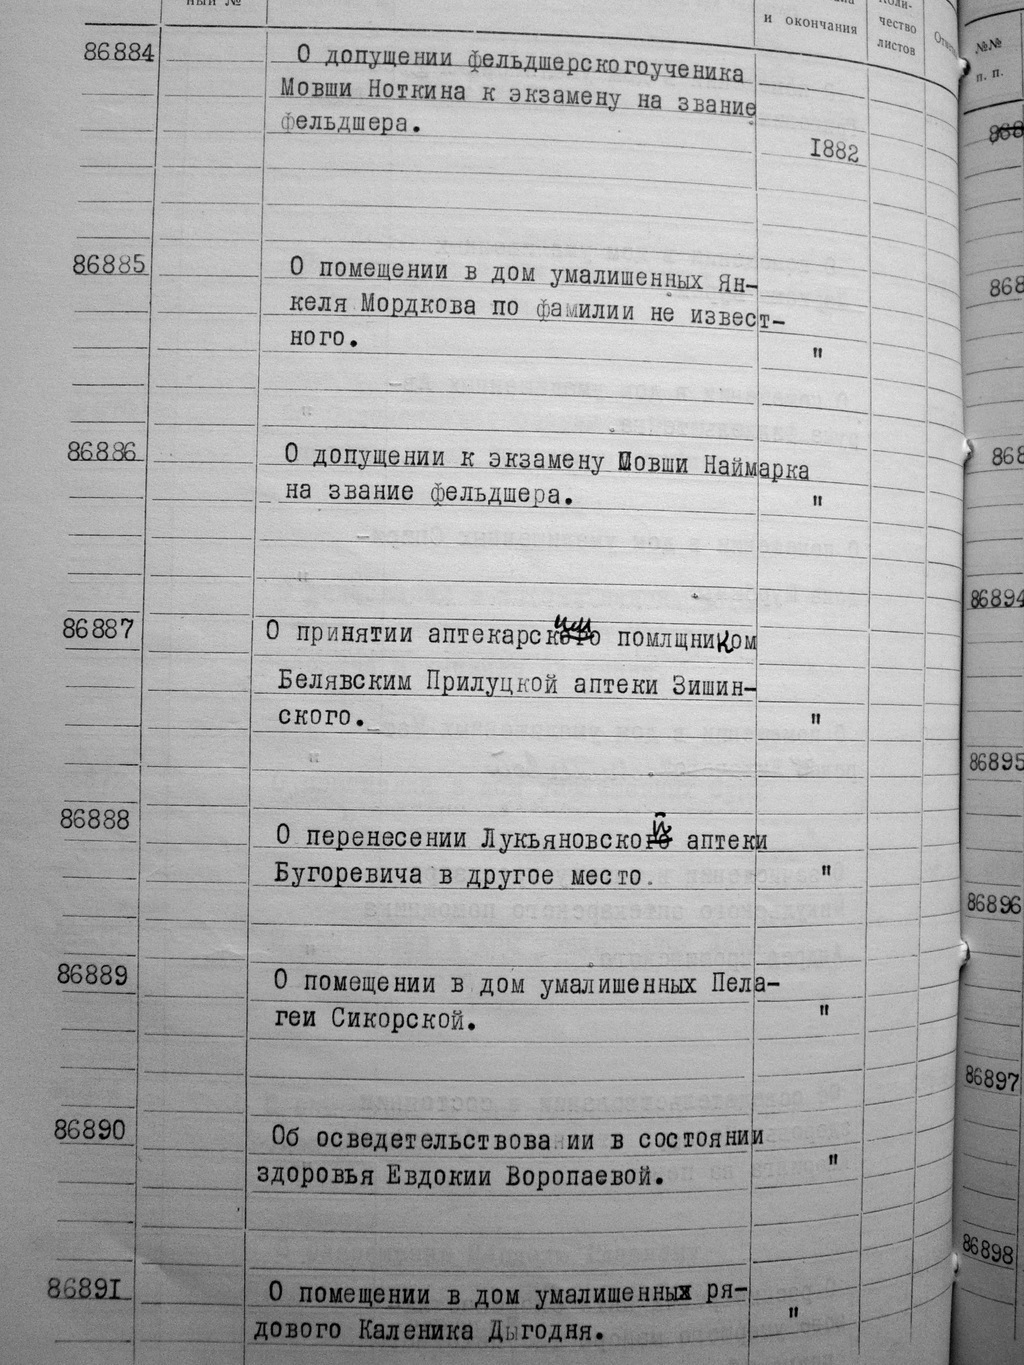 ный №
и окончания
Коли-
чество
листов
№№
п. п.
86884
О допущении фельдшерскогоученика
Мовши Ноткина к экзамену на звание
фельдшера.
1882
86885
О помещении в дом умалишенных Ян-
келя Мордкова по фамилии не извест-
ного.
"
86886
О допущении к экзамену Мовши Наймарка
на звание фельдшера.
"
86887
О принятии аптекарским помлщником
Белявским Прилуцкой аптеки Зишин-
ского.
"
86888
О перенесении Лукьяновской аптеки
Бугоревича в другое место.
"
86889
О помещении в дом умалишенных Пела-
геи Сикорской.
"
86890
Об осведетельствова ии в состоянии
здоровья Евдокии Воропаевой.
"
86891
О помещении в дом умалишенных ря-
дового Каленика Дыгодня.
"
86894
86895
86896
86897
86898